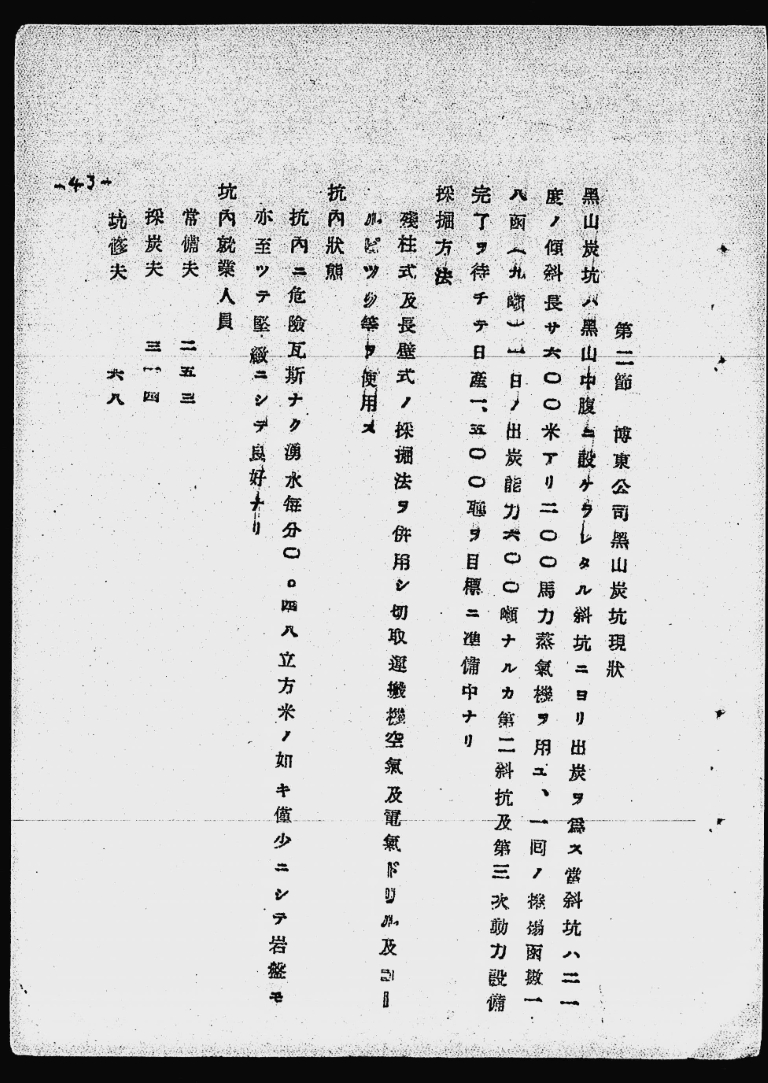 -43-
第二節　博東公司黑山炭坑現狀
黑山炭坑ハ黑山中腹ニ設ケラレタル斜坑ニヨリ出炭ヲ爲ス當斜坑ハ二一
度ノ傾斜長サ六〇〇米アリ二〇〇馬力蒸氣機ヲ用ユ、一囘ノ捲揚函數一
八函(九噸)一日ノ出炭能力六〇〇噸ナルカ第二斜抗及第三次動力設備
完了ヲ待チテ日產一、五〇〇瓲ヲ目標ニ準備中ナリ
採掘方法
殘柱式及長壁式ノ採掘法ヲ併用シ切取運搬機空氣及電氣ドリル及コー
ルピツク等ヲ使用ス
抗內狀態
抗內ニ危險瓦斯ナク湧水每分〇。四八立方米ノ如キ僅少ニシテ岩盤モ
亦至ツテ堅緻ニシテ良好ナリ
坑內就業人員
常傭夫　二五三
採炭夫　三一四
坑修夫　六八